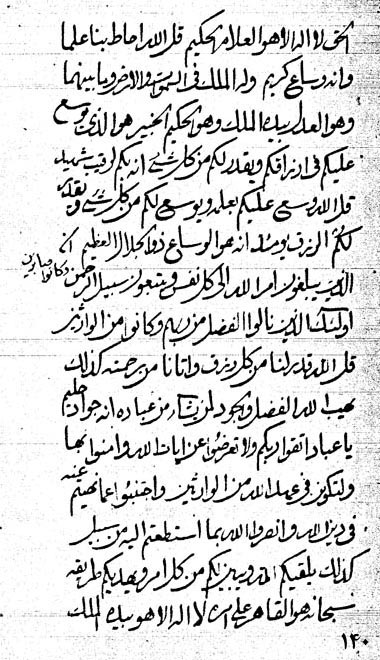 الحق لا اله الا هو العلام الحكيم قل الله احاط بنا علما
وانه وساع كريم وله الملك فى السموات والارض وما بينهما
وهو العدل بيده الملك وهو الحكيم الخبير هو الذى يوسع
عليكم فى ارزاقكم ويقدر لكم من كل شئ انه بكم لرقيب شهيد
قل الله وسع عليكم بعلمه ويوسع لكم من كل شئ ويقدر
لكم الرزق يومئذ انه هو الوساع ذو الجلال العظيم
الذين يبلغون امر الله الى كل نفس ويتبعون سبيل الرحمن وكانوا صابرين
اولئك الذين نالوا الفضل من ربهم وكانوا من الوارثين
قل الله قدر لنا من كل رزق واتانا من رحمته كذلك
يهب الله الفضل والجود لمن يشاء من عباده انه جواد حليم
يا عباد اتقوا ربكم ولا تعرضوا عن ايات الله وامنوا بها
ولتكونن فى عهد الله من الوارثين واجتنبوا عما نهيتم عنه
فى دين الله وانصروا الله بما استطعتم اليه من سبيل
كذلك يلقيكم الله ويبين لكم من كل امر ويهديكم طريقه
سبحانه هو القاهر على لا اله الا هو بيده الملك
١٤٠